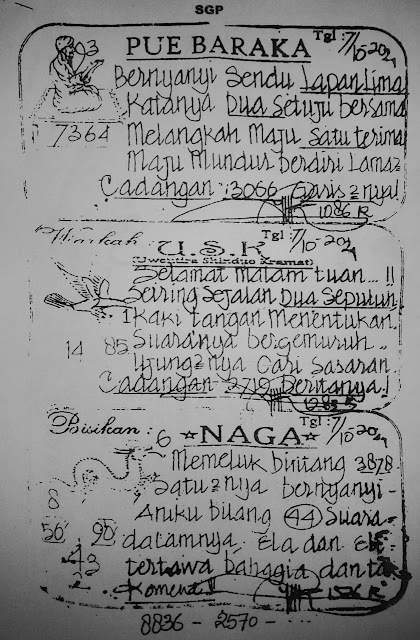 SGP
03
PUE BARAKA
Tgl: 7/10-2024
Bernyanyi Sendu Lapan Lima
Katanya Dua Setuju bersama
7364
Melangkah Maju Satu terima
Maju Mundur berdiri Lama2
Cadangan :3066 Garis2nya!
1086 R
U.S.K
Tgl: 7/10-2024
(Uwentira Skinduo Kramat)
Selamat Malam tuan...!!
Seiring Sejalan Dua Sepuluh!
1 Kaki tangan Menentukan.
14 85
Suaranya bergemuruh...
Ujung2nya Cari Sasaran
Cadangan -2719 Beritanya!
Bisikan : 6
NAGA
Tgl: 7/10-2024
Memeluk bintang 3878
8
Satu2nya bernyanyi-
Anuku bilang 44 Suara-
56 90
dalamnya. Ela dan
43
tertawa bahagia dan
Komenta!!
8836 - 2570 -